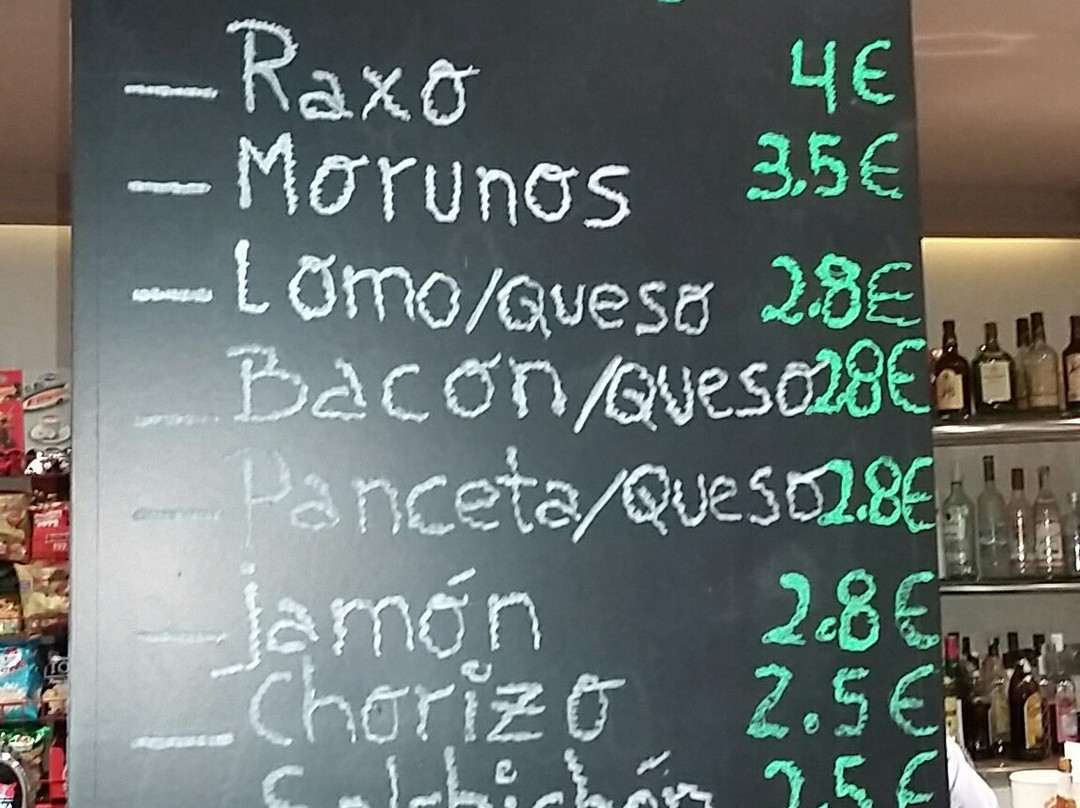 — Raxo 4€
— Morunos 3.5€
— Lomo/Queso 2.8€
— Bacon/Queso 2.8€
— Panceta/Queso 2.8€
— jamón 2.8€
— Chorizo 2.5€
Salchichón 2.5€